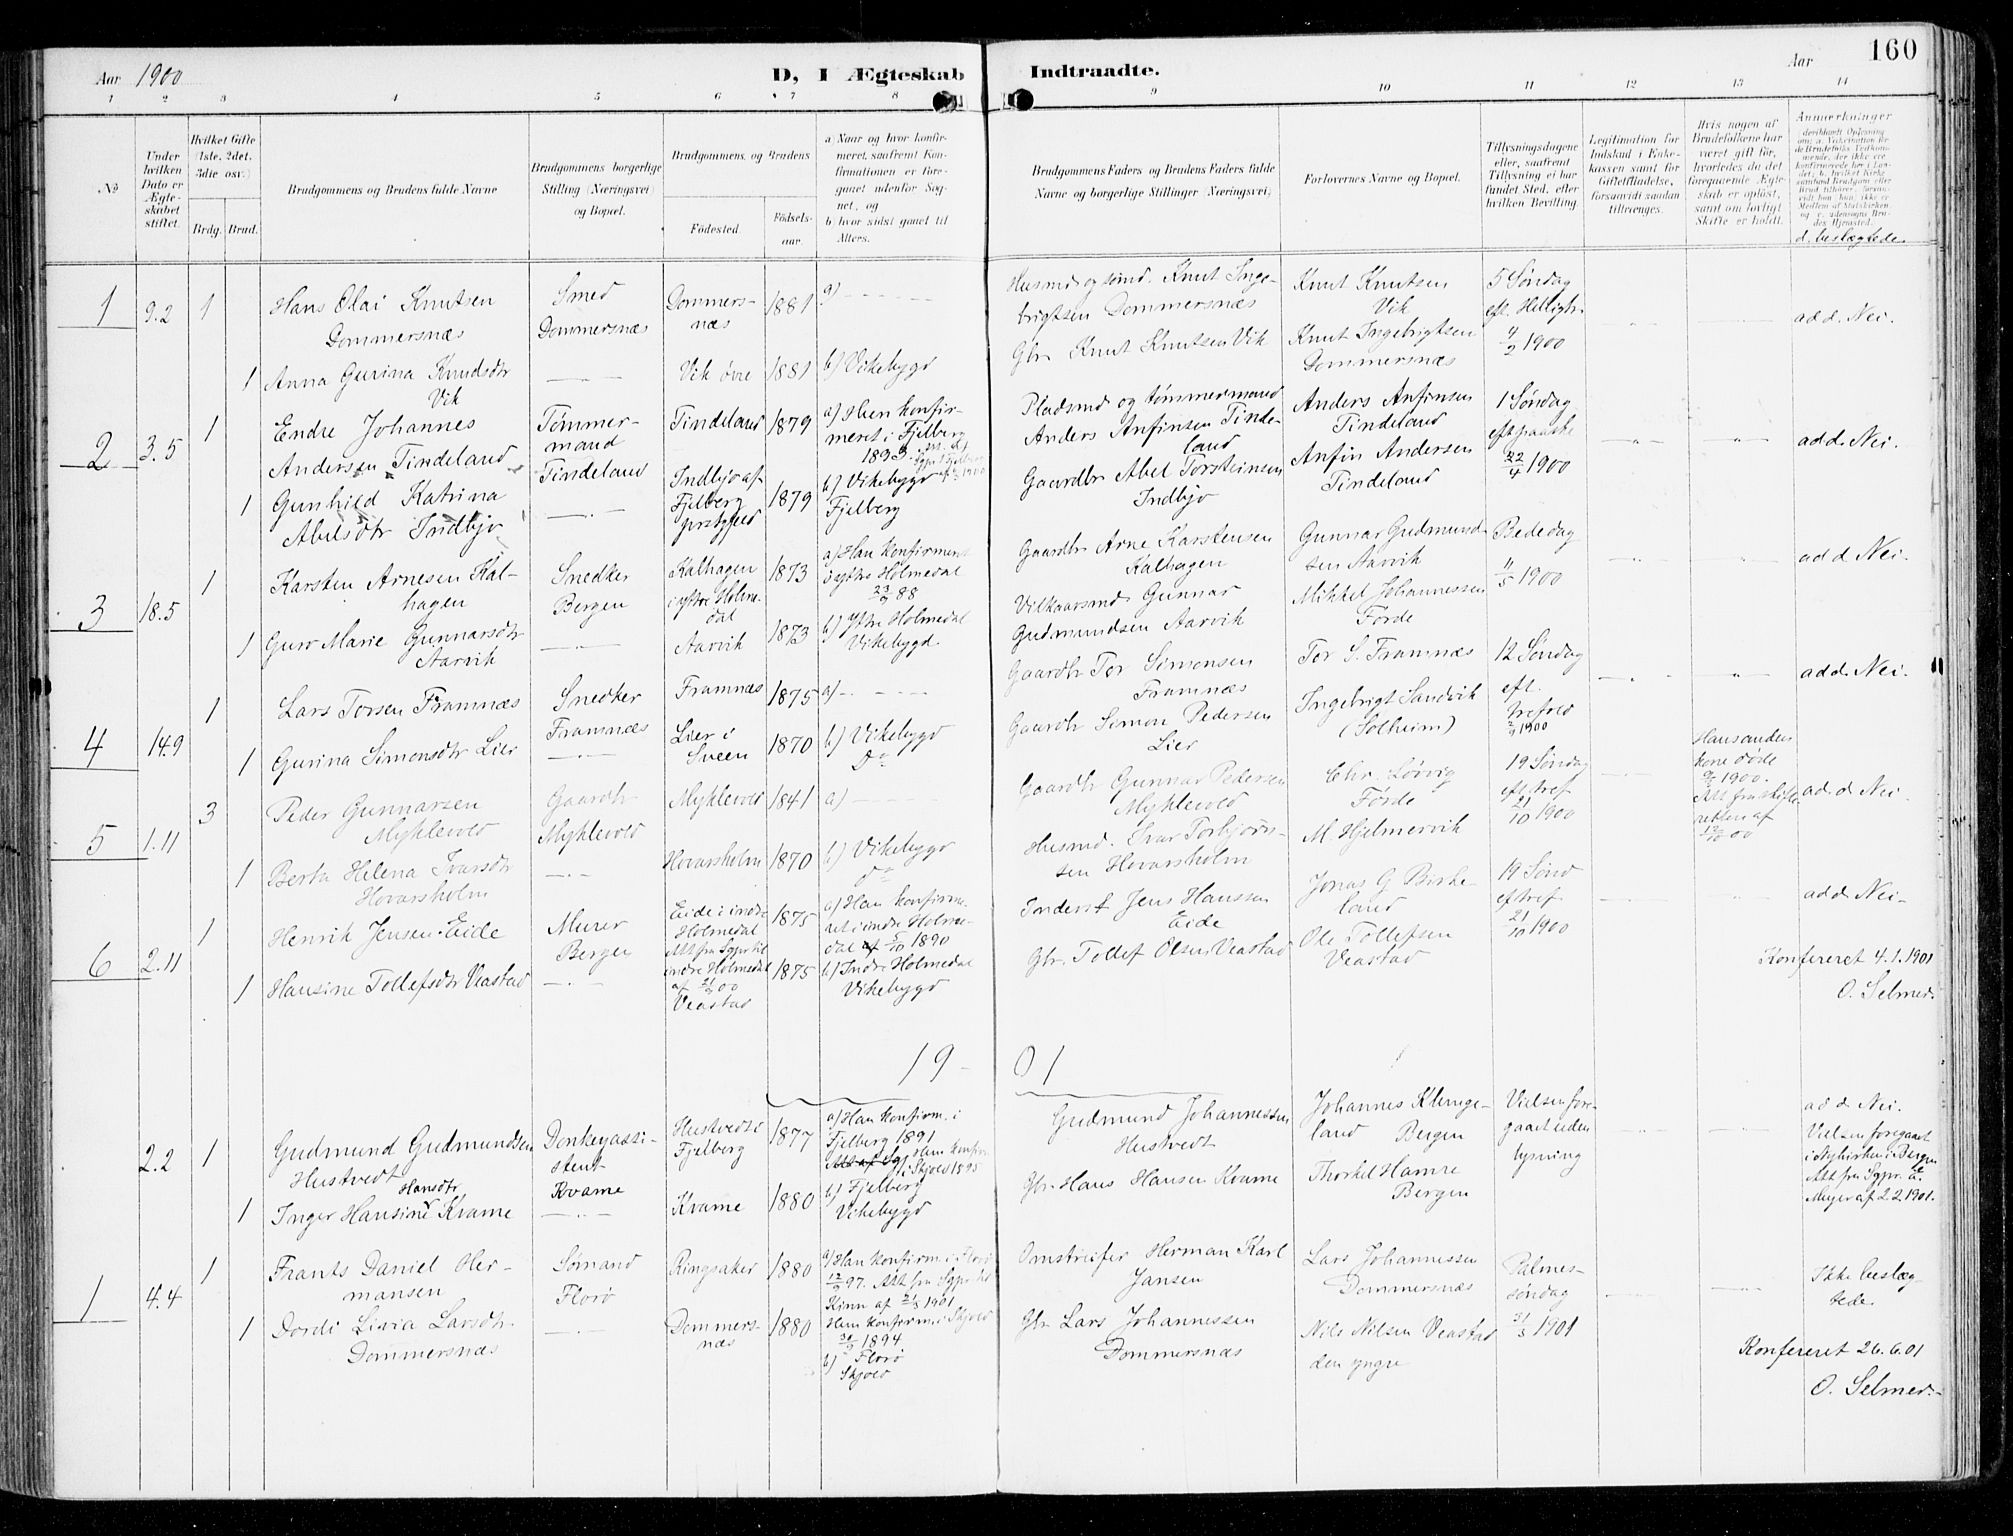 160
Aar 1900
D, I Ægteskab Indtraadte.
Aar
1 2 3 4 5 6 7 8 9 10 11 12 13 14
No
Under hvilken Dato er Ægteskabet stiftet.
Hvilket Gifte (1ste, 2det, 3die osv.)
Brdg. Brud.
Brudgommens og Brudens fulde Navne
Brudgommens borgerlige Stilling (Næringsvei) og Bopæl.
Brudgommens og Brudens
Fødested
Fødselsaar.
a) Naar og hvor konfirmeret, saafremt Konfirmationen er foregaaet udenfor Sognet, og
b) hvor sidst gaaet til Alters.
Brudgommens Faders og Brudens Faders fulde Navne og borgerlige Stillinger (Næringsvei)
Forlovernes Navne og Bopæl.
Tillysningsdagene eller, saafremt Tillysning ei har fundet Sted, efter hvilken Bevilling.
Legitimation for Indskud i Enkekassen samt for Giftetilladelse, forsaavidt saadan tiltrænges.
Hvis nogen af Brudefolkene har været gift før, hvorledes da det foregaaende Ægteskab er opløst, samt om lovligt Skifte er holdt.
Anmerkninger
d. beslægtede.
1 9.2 1
Hans Olai Knutsen
Dommersnæs
Smed
Dommersnæs
Dommersnæs
1881
a) - - - -
Husmd og tømd. Knut Ingebrigtsen Dommersnæs
Knut Knutsen
Vik
5 Søndag
eft. Helligtr.
4/2 1900
ad d. Nei.
1 Anna Gurina Knudsdtr
Vik
Vik øvre
1881
b) Vikebygd
Gbr Knut Knutsen Vik
Knut Ingebrigtsen
Dommersnæs
2 3.5 1
Endre Johannes
Andersen Tindeland
Tømmermand
Tindeland
Tindeland
1879
a) Han konfirmeret i Fjelberg
1893.
Pladsmd og tømmermand
Anders Anfinsen Tindeland
Anders Anfinsen
Tindeland
1 Søndag
eft paaske
22/4 1900
ad d. Nei.
1 Gunhild Katrina
Abelsdtr Indbjo
Indbjo af
Fjelberg
prstgjeld
1879
b) Vikebygd
Fjelberg
Gaardbr Abel Torsteinsen
Indbjo
Anfin Andersen
Tindeland
3 18.5 1
Karsten Arnesen Kalhagen
Snedker
Bergen
Kalhagen
i ytre Holmedal
1873
a) Han konfirmeret
i ytre Holmedal
23/9 88
Gaardbr Arne Karstensen
Kalhagen
Gunnar Gudmundsen Aarvik
Bededag
11/5 1900
ad d Nei.
1 Guro Marie Gunnarsdtr
Aarvik
Aarvik
1873
b) Ytre Holmedal
Vikebygd
Vilkaarsmd Gunnar
Gudmundsen Aarvik
Mikkel Johannessen
Førde
4 14.9 1
Lars Torsen Framnæs
Snedker
Framnæs
Framnæs
1875
a) - - - -
Gaardbr Tor Simonsen
Framnæs
Tor S. Framnæs
12 Søndag
eft.
trefold
2/9 1900
ad d. Nei.
1 Gurina Simonsdtr Lier
Lier i
Sveen
1870
b) Vikebygd
Do
Gaardbr Simon Pedersen
Lier
Ingebrigt Sandvik
(Solheim)
5 1.11 3
Peder Gunnarsen
Myklevold
Gaardbr
Myklevold
Myklevold
1841
a) - - - -
Gaardbr Gunnar Pedersen
Myklevold
Chr. Løvvig
Førde
19 Søndag
eft tref
21/10 1900
Hans anden
kone døde
1900.
Att fra skifteretten af
12/10 00
ad d Nei
1 Berta Helena Ivarsdtr
Hovarsholm
Hovarsholm
1870
b) Vikebygd
Do
Husmd. Ivar Torbjørnsen Hovarsholm
M. Hjelmervik
6 2.11 1
Henrik Jensen Eide
Murer
Bergen
Eide i indre
Holmedal
Att fra Sgpr til
indre Holmedal
1875
a) Han konfirmeret i indre Holmedal 5/10 1890
Inderst Jens Hanssen
Eide
Jonas G Birkeland
19 Sønd
eftref
21/10 1900
ad d Nei.
1 Hansine Tollefsdtr Veastad
Veastad
1875
b) Indre Holmedal
Vikebygd
Gbr. Tollef Olsen Veastad
Ole Tollefsen
Veastad
Konfereret 4.1.1901
O. Selmer.
1901
2.2 1
Gudmund Gudmundsen
Hustvedt
Donkeyassistent
Kvame
Hustvedt i
Fjelberg
1877
a) Han konfirm. i
Fjelberg 1891
Hun konfirm
i Skjold 1895
Gudmund Johannessen
Hustvedt
Johannes Klungeland Bergen
Vielsen foregaaet uden
lysning
ad d. Nei.
Vielsen foregaaet
i Nykirken i Bergen
Att fra Sgpr. E.
Meyer af 2.2.1901.
Hansdtr
1 Inger Hansine Kvame
Kvame
1880
b) Fjelberg
Vikebygd
Gbr. Hans Hansen Kvame
Thorkel Hamre
Bergen
1 4.4 1
Frants Daniel Hermansen
Sømand
Florø
Ringsaker
1880
a) Han konfirm. i Florø
12/9 97. Att fra Sgpr til
Kinn af 21/3 1901
Omstreifer Herman Karl
Jansen
Lars Johannessen
Dommersnæs
Palmesøndag
31/3 1901
Ikke beslægtede.
1 Dordi Livia Larsdtr
Dommersnæs
Dommersnæs
1880
Hun konfirm. i Skjold
30/9 1894
b) Florø
Skjold
Gbr Lars Johannessen
Dommersnæs
Nils Nilsen Veastad
den yngre
Konfereret 26.6.01
O. Selmer.